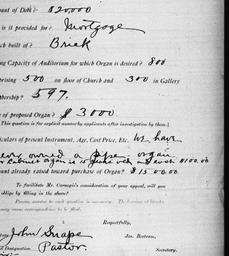 ount of Debt:- $20,000
is it provided for? Mortgage
ch built of? Brick
ng Capacity of Auditorium for which Organ is desired? 800
prising 500 on floor of Church and 300 in Gallery
mbership? 597.
of proposed Organ? $3000
[This question is for explicit answer by applicants after investigation by them.]
iculars of present Instrument, Age, Cost Price, Etc. We have
never owned a pipe organ
ount already raised toward purchase of Organ? $1500.00
To facilitate Mr. Carnegie's consideration of your appeal, will you
oblige by filling in the above?
Respectfully,
John Snape
Jas. Bertram,
Designation. Pastor.
Secretary.